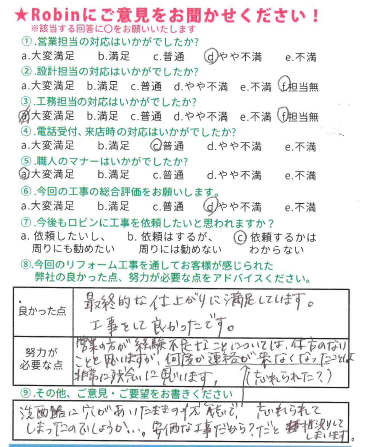 ★Robinにご意見をお聞かせください！
※該当する回答に〇をお願いいたします
①.営業担当の対応はいかがでしたか?
a.大変満足 b.満足 c.普通 d.やや不満 e.不満
②.設計担当の対応はいかがでしたか?
a.大変満足 b.満足 c.普通 d.やや不満 e.不満 f.担当無
③.工務担当の対応はいかがでしたか?
a.大変満足 b.満足 c.普通 d.やや不満 e.不満 f.担当無
④.電話受付、来店時の対応はいかがでしたか?
a.大変満足 b.満足 c.普通 d.やや不満 e.不満
⑤.職人のマナーはいかがでしたか?
a.大変満足 b.満足 c.普通 d.やや不満 e.不満
⑥.今回の工事の総合評価をお願いします。
a.大変満足 b.満足 c.普通 d.やや不満 e.不満
⑦.今後もロビンに工事を依頼したいと思われますか?
a. 依頼したいし、 b. 依頼はするが、 c 依頼するかは
周りにも勧めたい 周りには勧めない わからない
⑧.今回のリフォーム工事を通してお客様が感じられた
弊社の良かった点、努力が必要な点をアドバイスください。
良かった点
最終的な仕上がりに満足しています。
工事をして良かったです。
努力が
必要な点
営業の方が経験不足なことについては、仕方のない
ことと思いますが、何度か連絡が来なくなったことは
非常に残念に思います。(忘れられた?)
⑨.その他、ご意見・ご要望をお書きください
洗面台に穴があいたままのイズ 忘れられて
しまったのでしょうか…。安価な工事だから?だと
しまいます。